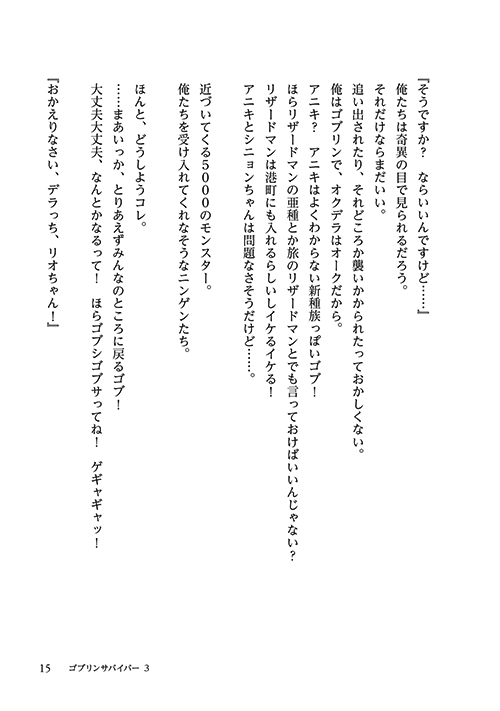 『そうですか？　ならいいんですけど……』
俺たちは奇異の目で見られるだろう。
それだけならまだいい。
追い出されたり、それどころか襲いかかられたっておかしくない。
俺はゴブリンで、オクデラはオークだから。
アニキ？　アニキはよくわからない新種族っぽいゴブ！
ほらリザードマンの亜種とか旅のリザードマンとでも言っておけばいいんじゃない？
リザードマンは港町にも入れるらしいしイケるイケる！
アニキとシニョンちゃんは問題なさそうだけど……。
近づいてくる5000のモンスター。
俺たちを受け入れてくれなそうなニンゲンたち。
ほんと、どうしようコレ。
……まあいっか、とりあえずみんなのところに戻るゴブ！
大丈夫大丈夫、なんとかなるって！　ほらゴブシゴブサってね！　ゲギャギャッ！
『おかえりなさい、デラっち、リオちゃん！』
15　ゴブリンサバイバー 3